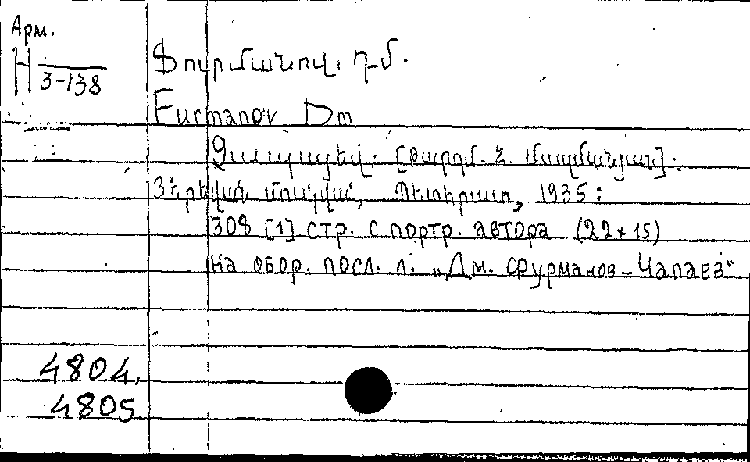 Арм.
Н 3-138
Ֆուրմանով. Դ.մ.
Furmanov Dm
Չապաև. [Թարգմ.
Յերևան, Պետհրատ, 1935:
308 [1] стр. с портр. автора (22×15)
на обор. посл. л. „Дм. Фурманов-Чапаев“
4804,
4805